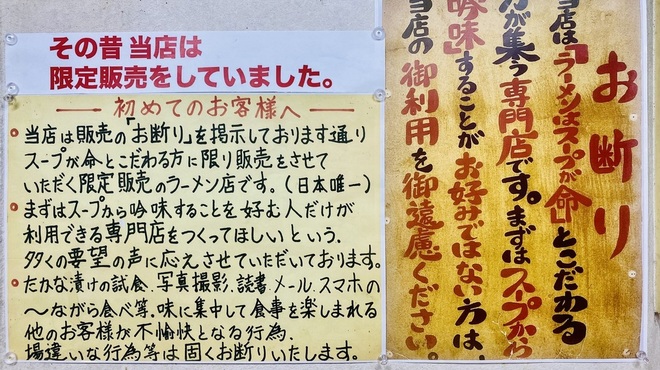 その昔 当店は
限定販売をしていました。
初めてのお客様へ
当店は販売の「お断り」を掲示しております通り
スープが命とこだわる方に限り販売をさせて
いただく限定販売のラーメン店です。(日本唯一)
まずはスープから吟味することを好む人だけが
利用できる専門店をつくってほしいという、
多くの要望の声に応えさせていただいております。
たかな漬けの試食、写真撮影、読書、メール、スマホの
〜ながら食べ等、味に集中して食事を楽しまれる
他のお客様が不愉快となる行為、
場違いな行為等は固くお断りいたします。
お断り
当店は「ラーメンはスープが命」とこだわる
方が集う専門店です。まずはスープから
吟味することがお好みではない方は、
当店の御利用を御遠慮ください。